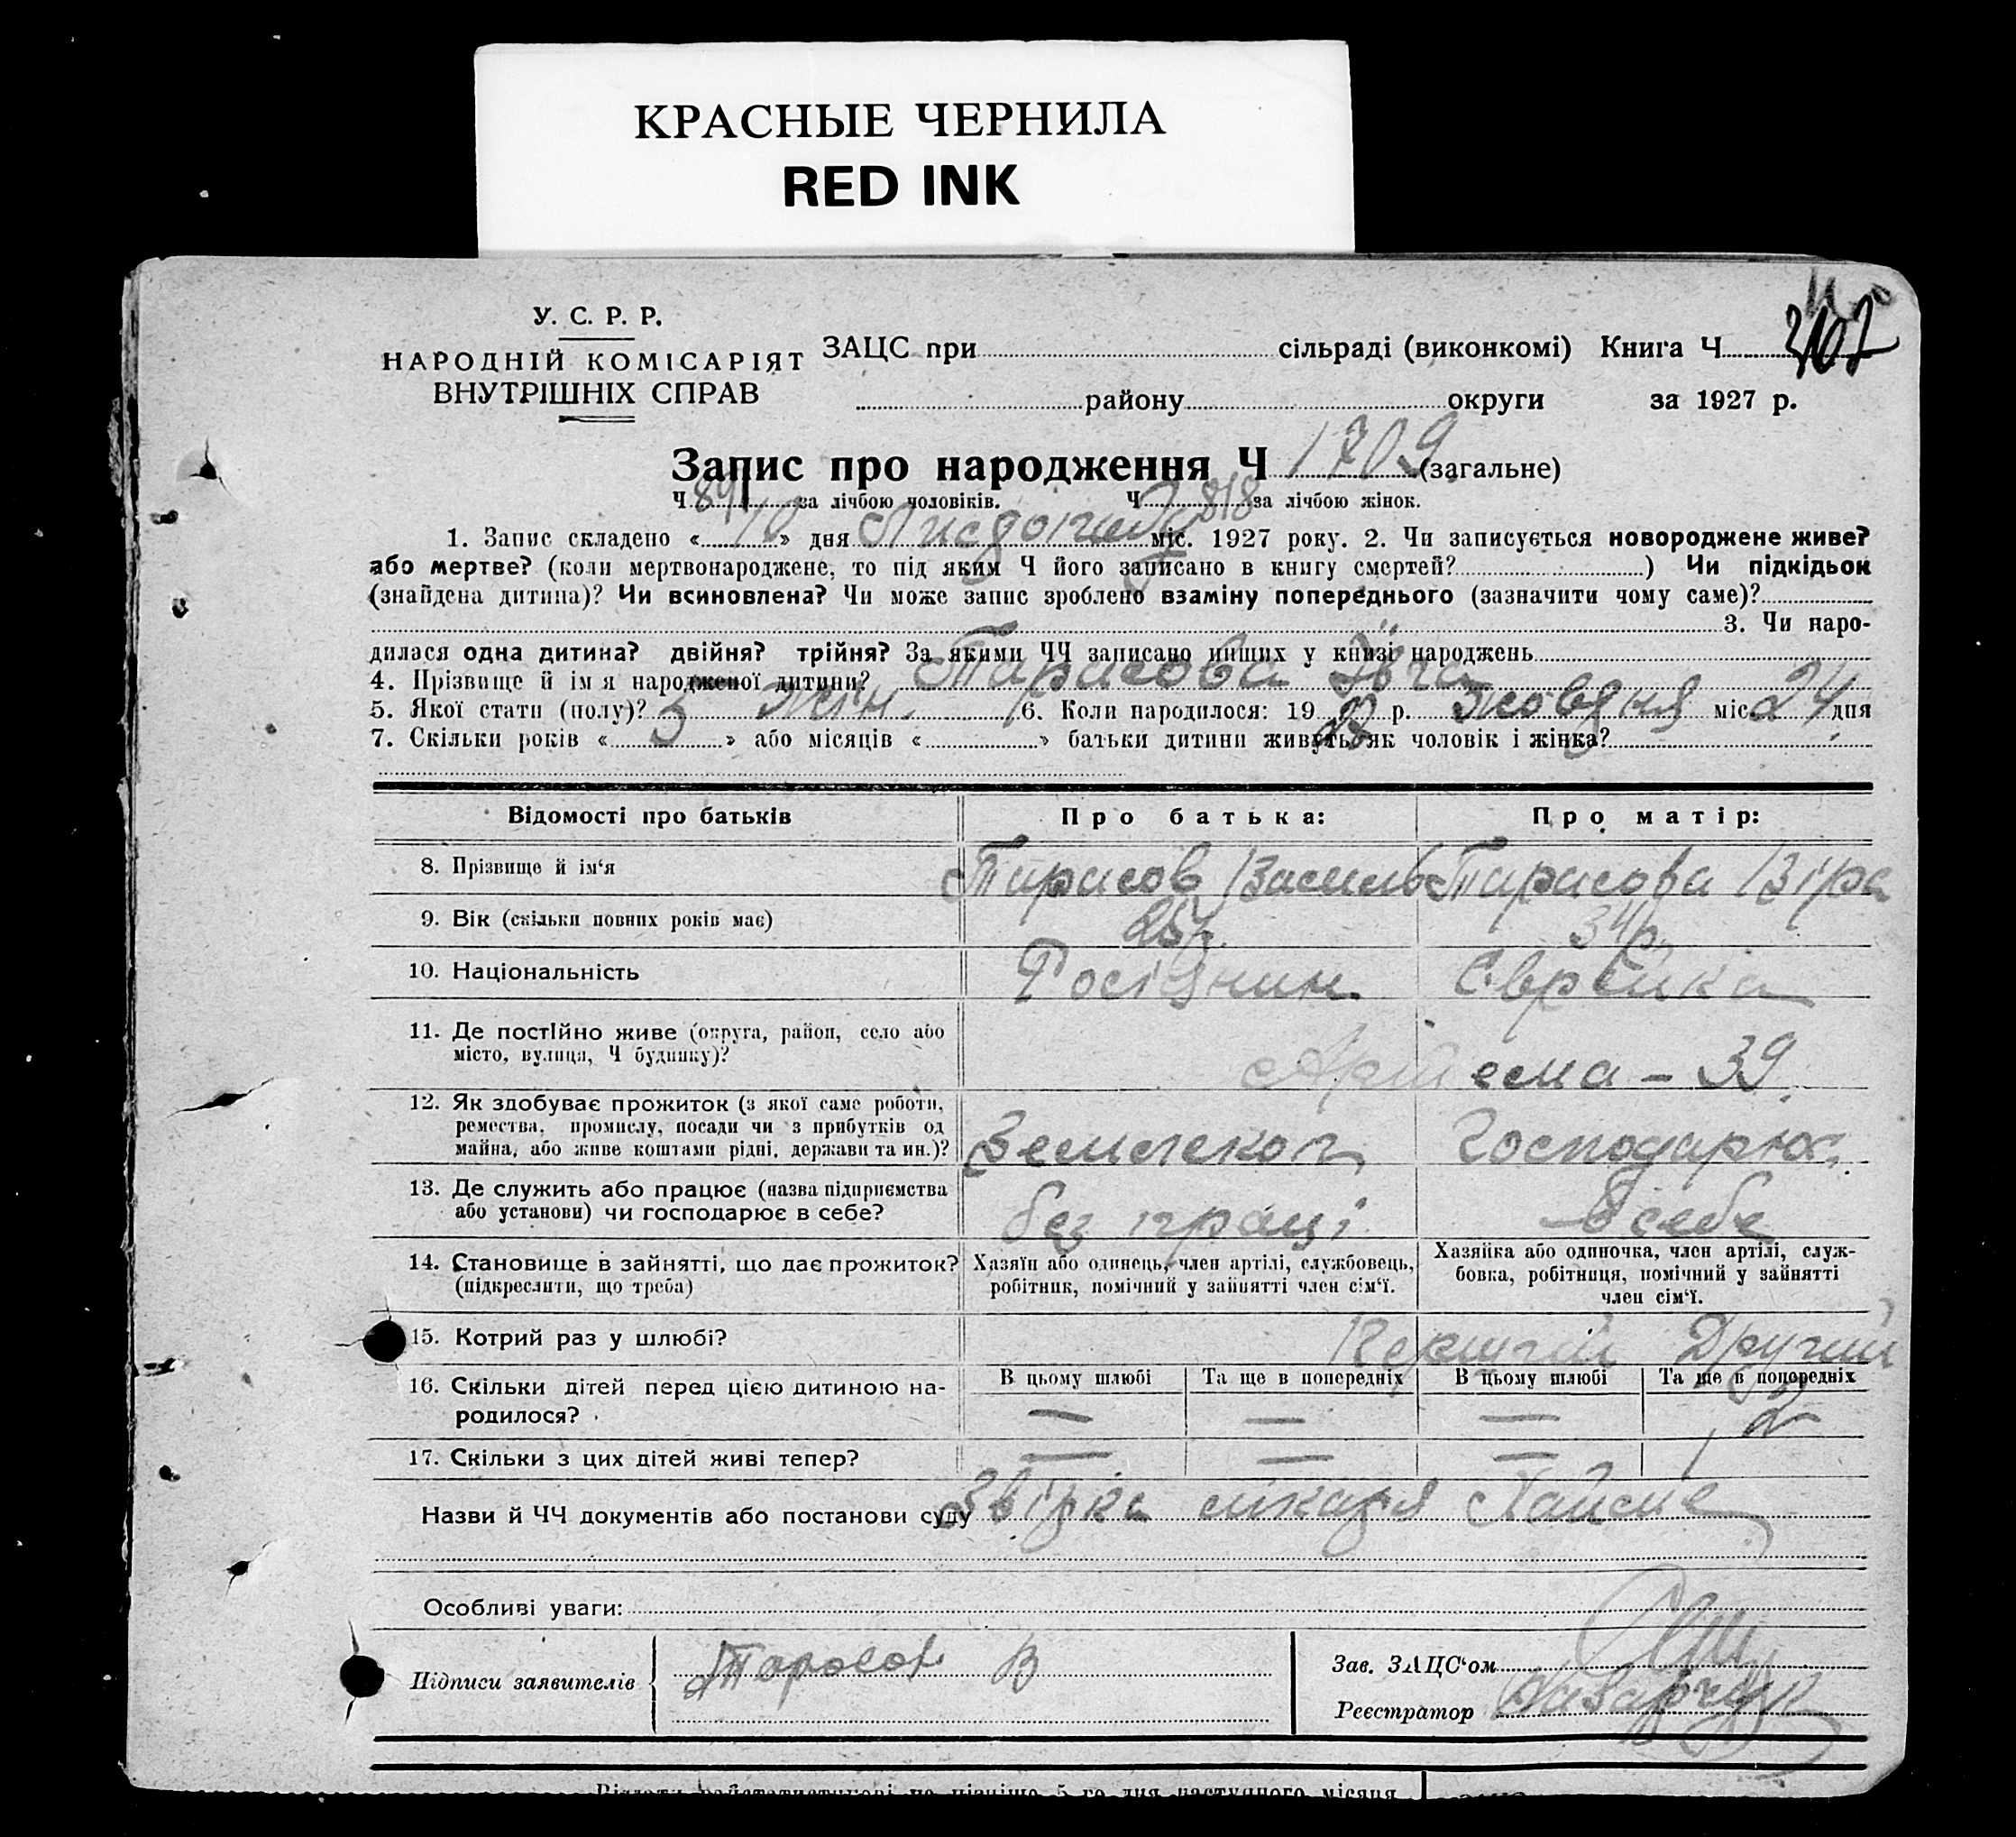 КРАСНЫЕ ЧЕРНИЛА
RED INK
У. С. Р. Р.
НАРОДНІЙ КОМІСАРІЯТ
ВНУТРІШНІХ СПРАВ
ЗАЦС при сільраді (виконкомі) Книга Ч
району округи за 1927 р.
Запис про народження Ч 1709 (загальне)
Ч 891 за лічбою чоловіків. Ч 818 за лічбою жінок.
1. Запис складено « 10 » дня Листопаду міс. 1927 року. 2. Чи записується новороджене живе?
або мертве? (коли мертвонароджене, то під яким Ч його записано в книгу смертей? ) Чи підкідьок
(знайдена дитина)? Чи всиновлена? Чи може запис зроблено взаміну попереднього (зазначити чому саме)?
3. Чи наро-
дилася одна дитина? двійня? трійня? За якими ЧЧ записано инших у книзі народжень
4. Прізвище й ім'я народженої дитини? Тарасова
5. Якої стати (полу)? жін. 6. Коли народилося: 19 р. жовтня міс. 24 дня
7. Скільки років « 3 » або місяців « » батьки дитини живуть як чоловік і жінка?
Відомості про батьків Про батька: Про матір:
8. Прізвище й ім'я Тарасов Василь Тарасова Віра
9. Вік (скільки повних років має) 34 р.
10. Національність Росіянин Єврейка
11. Де постійно живе (округа, район, село або
місто, вулиця, Ч будинку)? Артема – 39
12. Як здобуває прожиток (з якої саме роботи,
ремества, промислу, посади чи з прибутків од
майна, або живе коштами рідні, держави та ин.)? Землекоп Господарює
13. Де служить або працює (назва підприємства
або установи) чи господарює в себе? без праці в себе
14. Становище в зайнятті, що дає прожиток?
(підкреслити, що треба)
Хазяїн або одинець, член артілі, службовець,
робітник, помічний у зайнятті член сім'ї.
Хазяйка або одиночка, член артілі, служ-
бовка, робітниця, помічний у зайнятті
член сім'ї.
15. Котрий раз у шлюбі? Перший Другий
16. Скільки дітей перед цією дитиною на-
родилося?
В цьому шлюбі Та ще в попередніх В цьому шлюбі Та ще в попередніх
— — — 2
17. Скільки з цих дітей живі тепер? — — — 1
Назви й ЧЧ документів або постанови суду лікаря
Особливі уваги:
Підписи заявителів Тарасов В
Зав. ЗАЦС'ом
Реєстратор